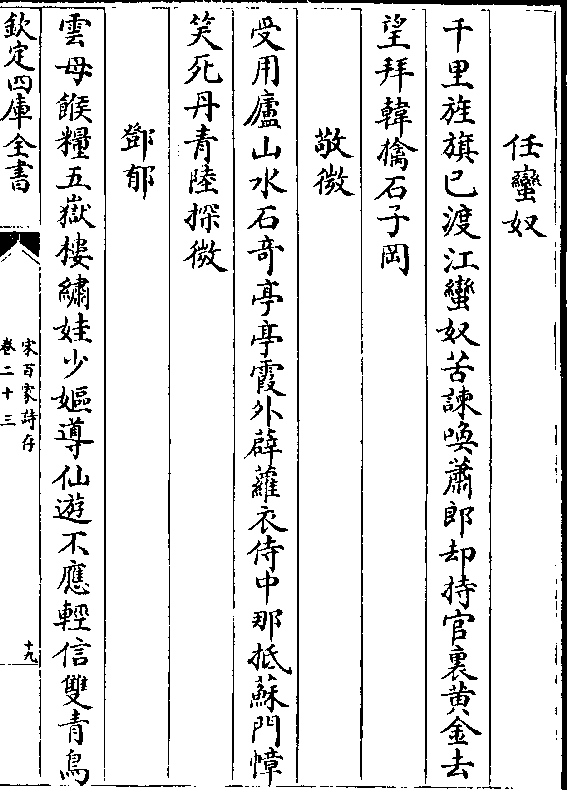 任蠻奴
千里旌旗已渡江蠻奴苦諫喚蕭郎却持官裏黄金去
望拜韓擒石子岡
敬微
受用廬山水石竒亭亭霞外薜蘿衣侍中那抵蘇門幛
笑死丹青陸探微
鄧郁
雲母餱糧五嶽棲繡娃少嫗導仙遊不應輕信雙青鳥
欽定四庫全書
宋百家詩存
卷二十三
十九